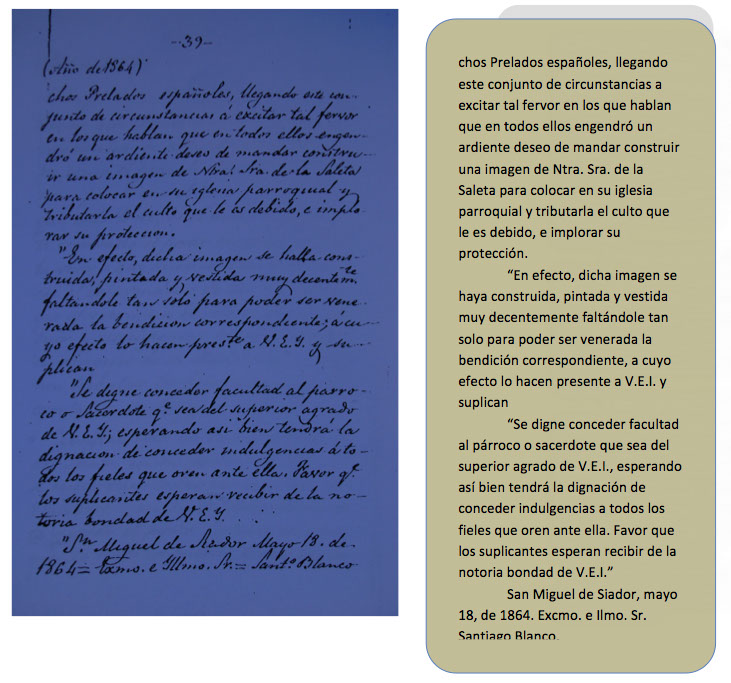 --39--
(Año de 1864)
chos Prelados españoles, llegando este con-
junto de circunstancias á excitar tal fervor
en los que hablan que en todos ellos engen-
dró un ardiente deseo de mandar constru-
ir una imagen de Ntra. Sra. de la Saleta
para colocar en su iglesia parroquial y
tributarla el culto que le es debido, e implo-
rar su proteccion.
"En efecto, dicha imagen se halla cons-
truida, pintada y vestida muy decentemte.
faltandole tan solo para poder ser vene-
rada la bendicion correspondiente; á cu-
yo efecto lo hacen preste. a V.E.Y. y su-
plican
"Se digne conceder facultad al parro-
co o Sacerdote qe. sea del superior agrado
de V.E.Y.; esperando asi bien tendrá la
dignacion de conceder indulgencias á to-
dos los fieles que oren ante ella. Favor qe.
los suplicantes esperan recibir de la no-
toria bondad de V.E.Y.
"Sn. Miguel de Siador Mayo 18. de
1864= Exmo. e Illmo. Sr.= Santo. Blanco
chos Prelados españoles, llegando
este conjunto de circunstancias a
excitar tal fervor en los que hablan
que en todos ellos engendró un
ardiente deseo de mandar construir
una imagen de Ntra. Sra. de la
Saleta para colocar en su iglesia
parroquial y tributarla el culto que
le es debido, e implorar su
protección.
“En efecto, dicha imagen se
haya construida, pintada y vestida
muy decentemente faltándole tan
solo para poder ser venerada la
bendición correspondiente, a cuyo
efecto lo hacen presente a V.E.I. y
suplican
“Se digne conceder facultad
al párroco o sacerdote que sea del
superior agrado de V.E.I., esperando
así bien tendrá la dignación de
conceder indulgencias a todos los
fieles que oren ante ella. Favor que
los suplicantes esperan recibir de la
notoria bondad de V.E.I.”
San Miguel de Siador, mayo
18, de 1864. Excmo. e Ilmo. Sr.
Santiago Blanco.